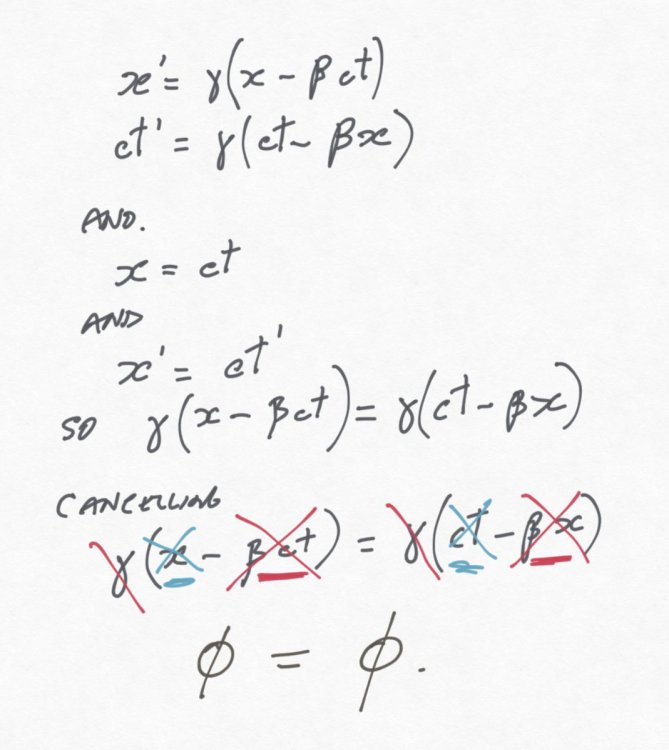 x' = γ(x - βct)
ct' = γ(ct - βx)
AND.
x = ct
AND
x' = ct'
SO γ(x - βct) = γ(ct - βx)
CANCELLING
γ(x - βct) = γ(ct - βx)
ϕ = ϕ.